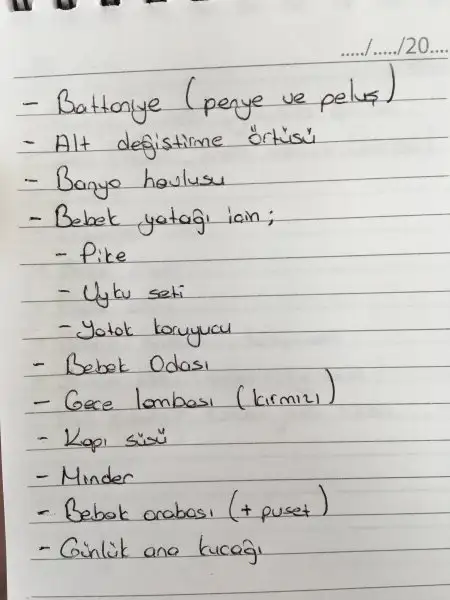 ...../...../20....
- Battaniye (penye ve peluş)
- Alt değiştirme örtüsü
- Banyo havlusu
- Bebek yatağı için;
- Pike
- Uyku seti
- Yatak koruyucu
- Bebek Odası
- Gece lambası (kırmızı)
- Kapı süsü
- Minder
- Bebek arabası (+ puset)
- Günlük ana kucağı